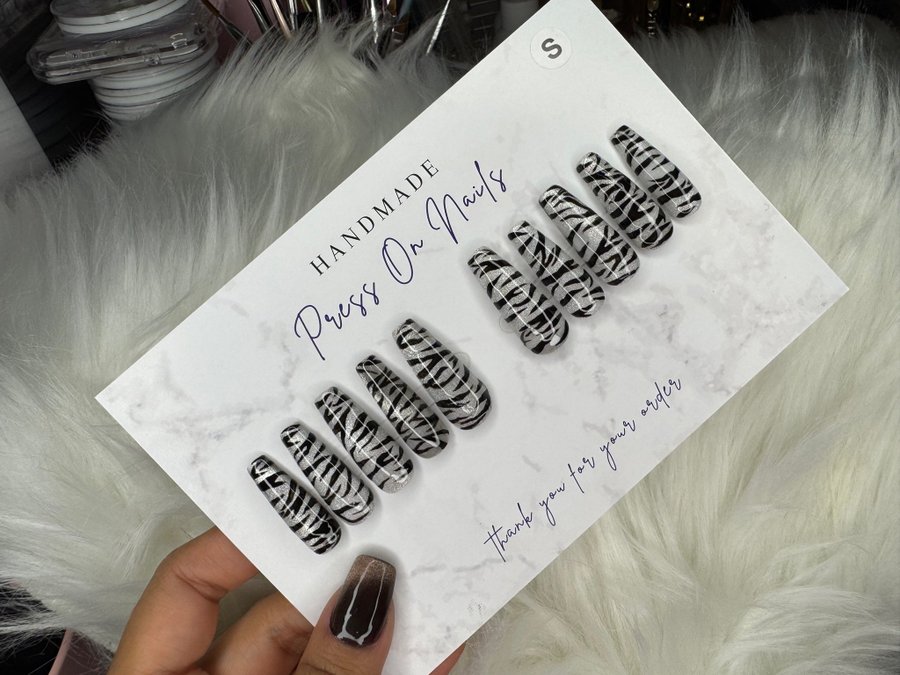 S
HANDMADE
Press On Nails
thank you for your order